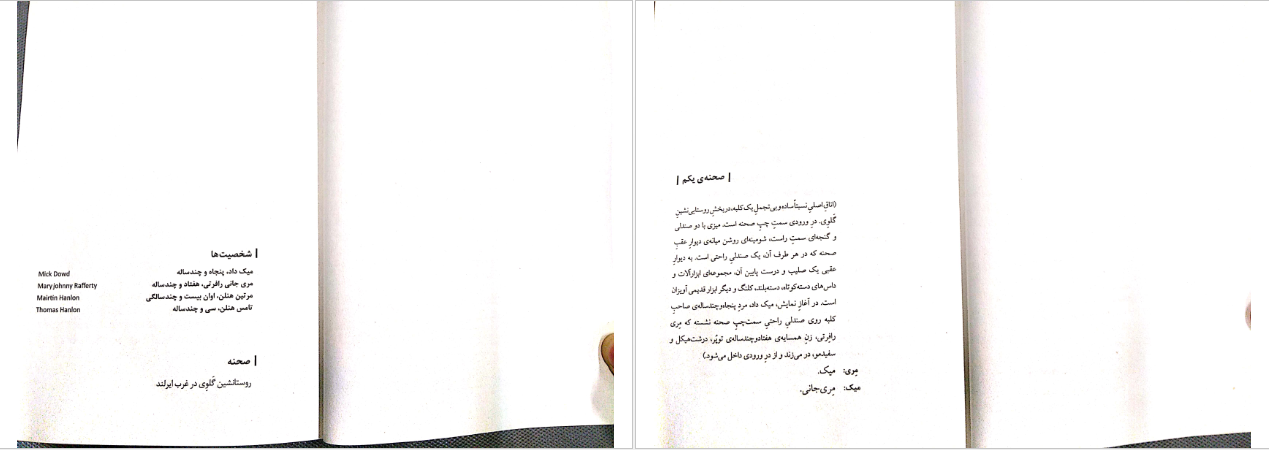 شخصیت‌ها
میک داد، پنجاه و چندساله Mick Dowd
مری جانی رافرتی، هفتاد و چندساله Maryjohnny Rafferty
مرتین هنلن، اوان بیست و چندسالگی Mairtin Hanlon
تامس هنلن، سی و چندساله Thomas Hanlon
صحنه
روستانشین گَلوِی در غرب ایرلند
صحنه‌ی یکم
(اتاق اصلیِ نسبتاً ساده و بی‌تجملِ یک کلبه، در بخشِ روستایی‌نشینِ
گَلوِی. درِ ورودی سمتِ چپِ صحنه است. میزی با دو صندلی
و گنجه‌ای سمتِ راست، شومینه‌ای روشن میانه‌ی دیوارِ عقبِ
صحنه که در هر طرف آن، یک صندلیِ راحتی است. به دیوارِ
عقبی یک صلیب و درست پایین آن، مجموعه‌ای ابزارآلات و
داس‌های دسته‌کوتاه، دسته‌بلند، کلنگ و دیگر ابزار قدیمی آویزان
است. در آغازِ نمایش، میک داد، مردِ پنجاه‌وچندساله‌ی صاحبِ
کلبه روی صندلیِ راحتیِ سمت‌چپِ صحنه نشسته که مِری
رافِرتی، زنِ همسایه‌ی هفتادوچندساله‌ی توپُر، درشت‌هیکل و
سفیدمو، در می‌زند و از درِ ورودی داخل می‌شود.)
مِری: میک.
میک: مِری‌جانی.